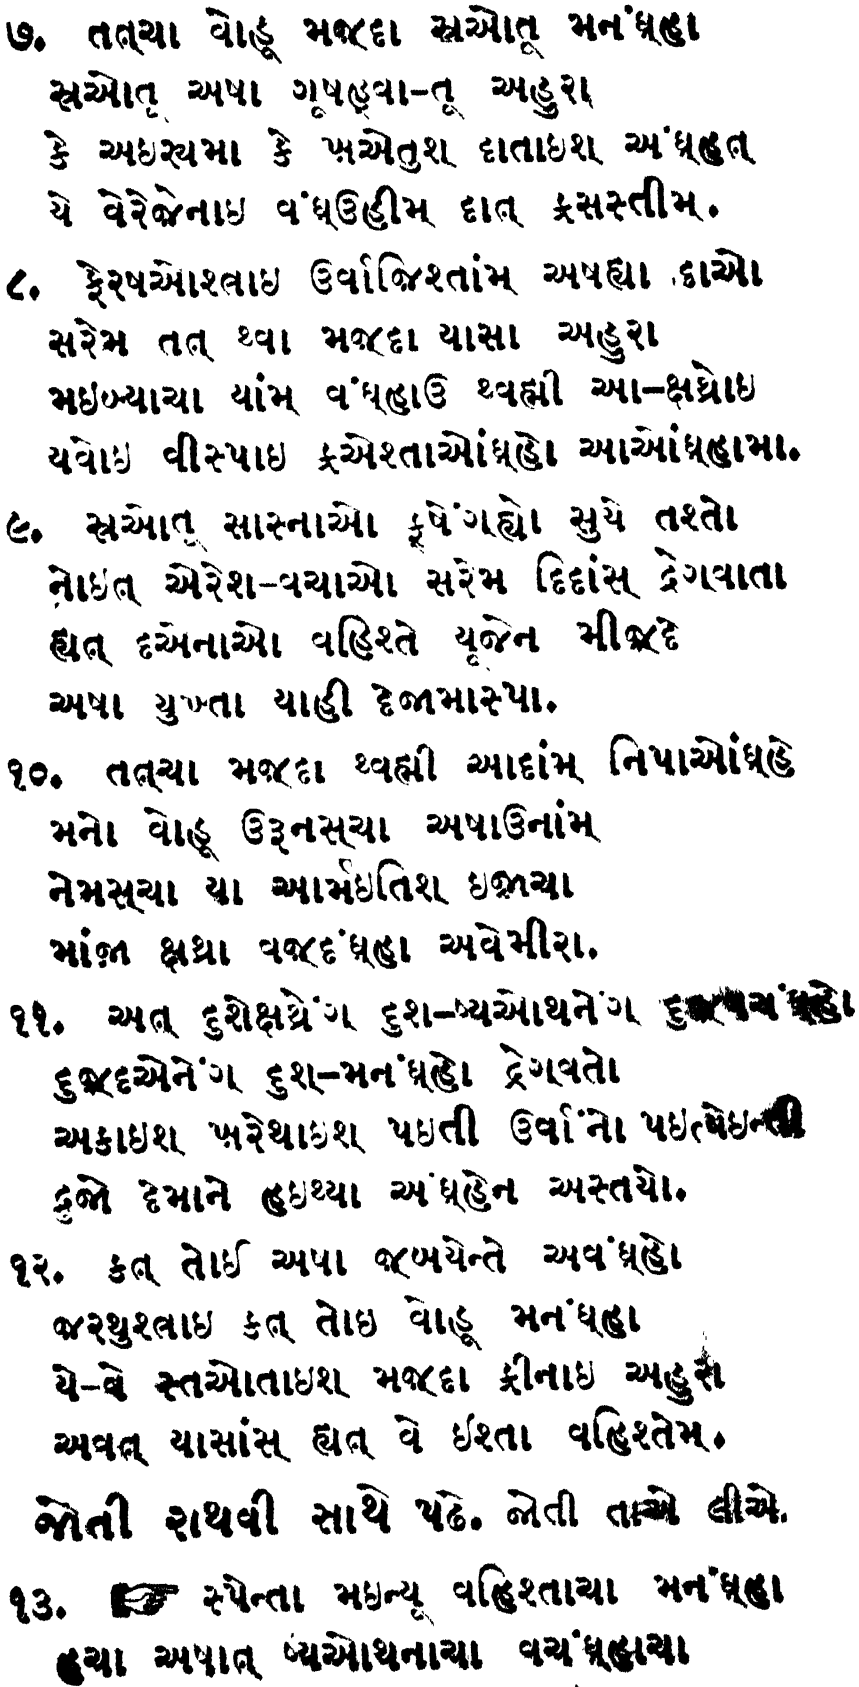 ૭. તત્ચા વોહૂ મજદા સ્રઓતૂ મનંઘ્હા
સ્રઓતૂ અષા ગૂષહ્વા-તૂ અહુરા
કે અઇરયમા કે ખએતુશ દાતાઇશ અંઘ્હત્
યે વેરેજેનાઇ વંઘ્ઉહીમ્ દાત્ ફ્રસસ્તીમ્.
૮. ફેરષઓશ્ત્રાઇ ઉર્વાજિશ્તાંમ્ અષહ્યા દાઓ
સરેમ તત્ થ્વા મજદા યાસા અહુરા
મઇબ્યાચા યાંમ્ વંઘ્હાઉ થ્વહ્મી આ-ક્ષથ્રોઇ
યવોઇ વીસ્પાઇ ફ્રએશ્તાઓંઘ્હો આઓંઘ્હામા.
૯. સ્રઓતૂ સાસ્નાઓ ફ્ષેંગહ્યો સુયે તશ્તો
નોઇત્ એરેશ-વચાઓ સરેમ દિદાંસ્ દ્રેગવાતા
હ્યત્ દએનાઓ વહિશ્તે યૂજેન મીજદે
અષા યુખ્તા યાહી દેજામાસ્પા.
૧૦. તત્ચા મજદા થ્વહ્મી આદાંમ્ નિપાઓંઘ્હે
મનો વોહૂ ઉરૂનસ્ચા અષાઉનાંમ્
નેમસ્ચા યા આર્મઇતિશ ઇજાચા
માંજા ક્ષથ્રા વજદંઘ્હા અવેમીરા.
૧૧. અત્ દુશેક્ષથ્રેંગ દુશ-ષ્યઓથનેંગ દુજવચંઘ્હો
દુજદએનેંગ દુશ્-મનંઘ્હો દ્રેગવતો
અકાઇશ ખરેથાઇશ પઇતી ઉર્વાંનો પઇત્યેઇન્તી
દ્રુજો દેમાને હઇથ્યા અંઘ્હેન અસ્તયો.
૧૨. કત્ તોઈ અષા જબયેન્તે અવંઘ્હો
જરથુશ્ત્રાઇ કત્ તોઇ વોહૂ મનંઘ્હા
યે-વે સ્તઓતાઇશ મજદા ફ્રીનાઇ અહુરા
અવત્ યાસાંસ્ હ્યત્ વે ઈશ્તા વહિશ્તેમ્.
જોતી રાથવી સાથે પઢે. જોતી તાએ લીએ.
૧૩. ☞ સ્પેન્તા મઇન્યૂ વહિશ્તાચા મનંઘ્હા
હચા અષાત્ ષ્યઓથનાચા વચંઘ્હાચા